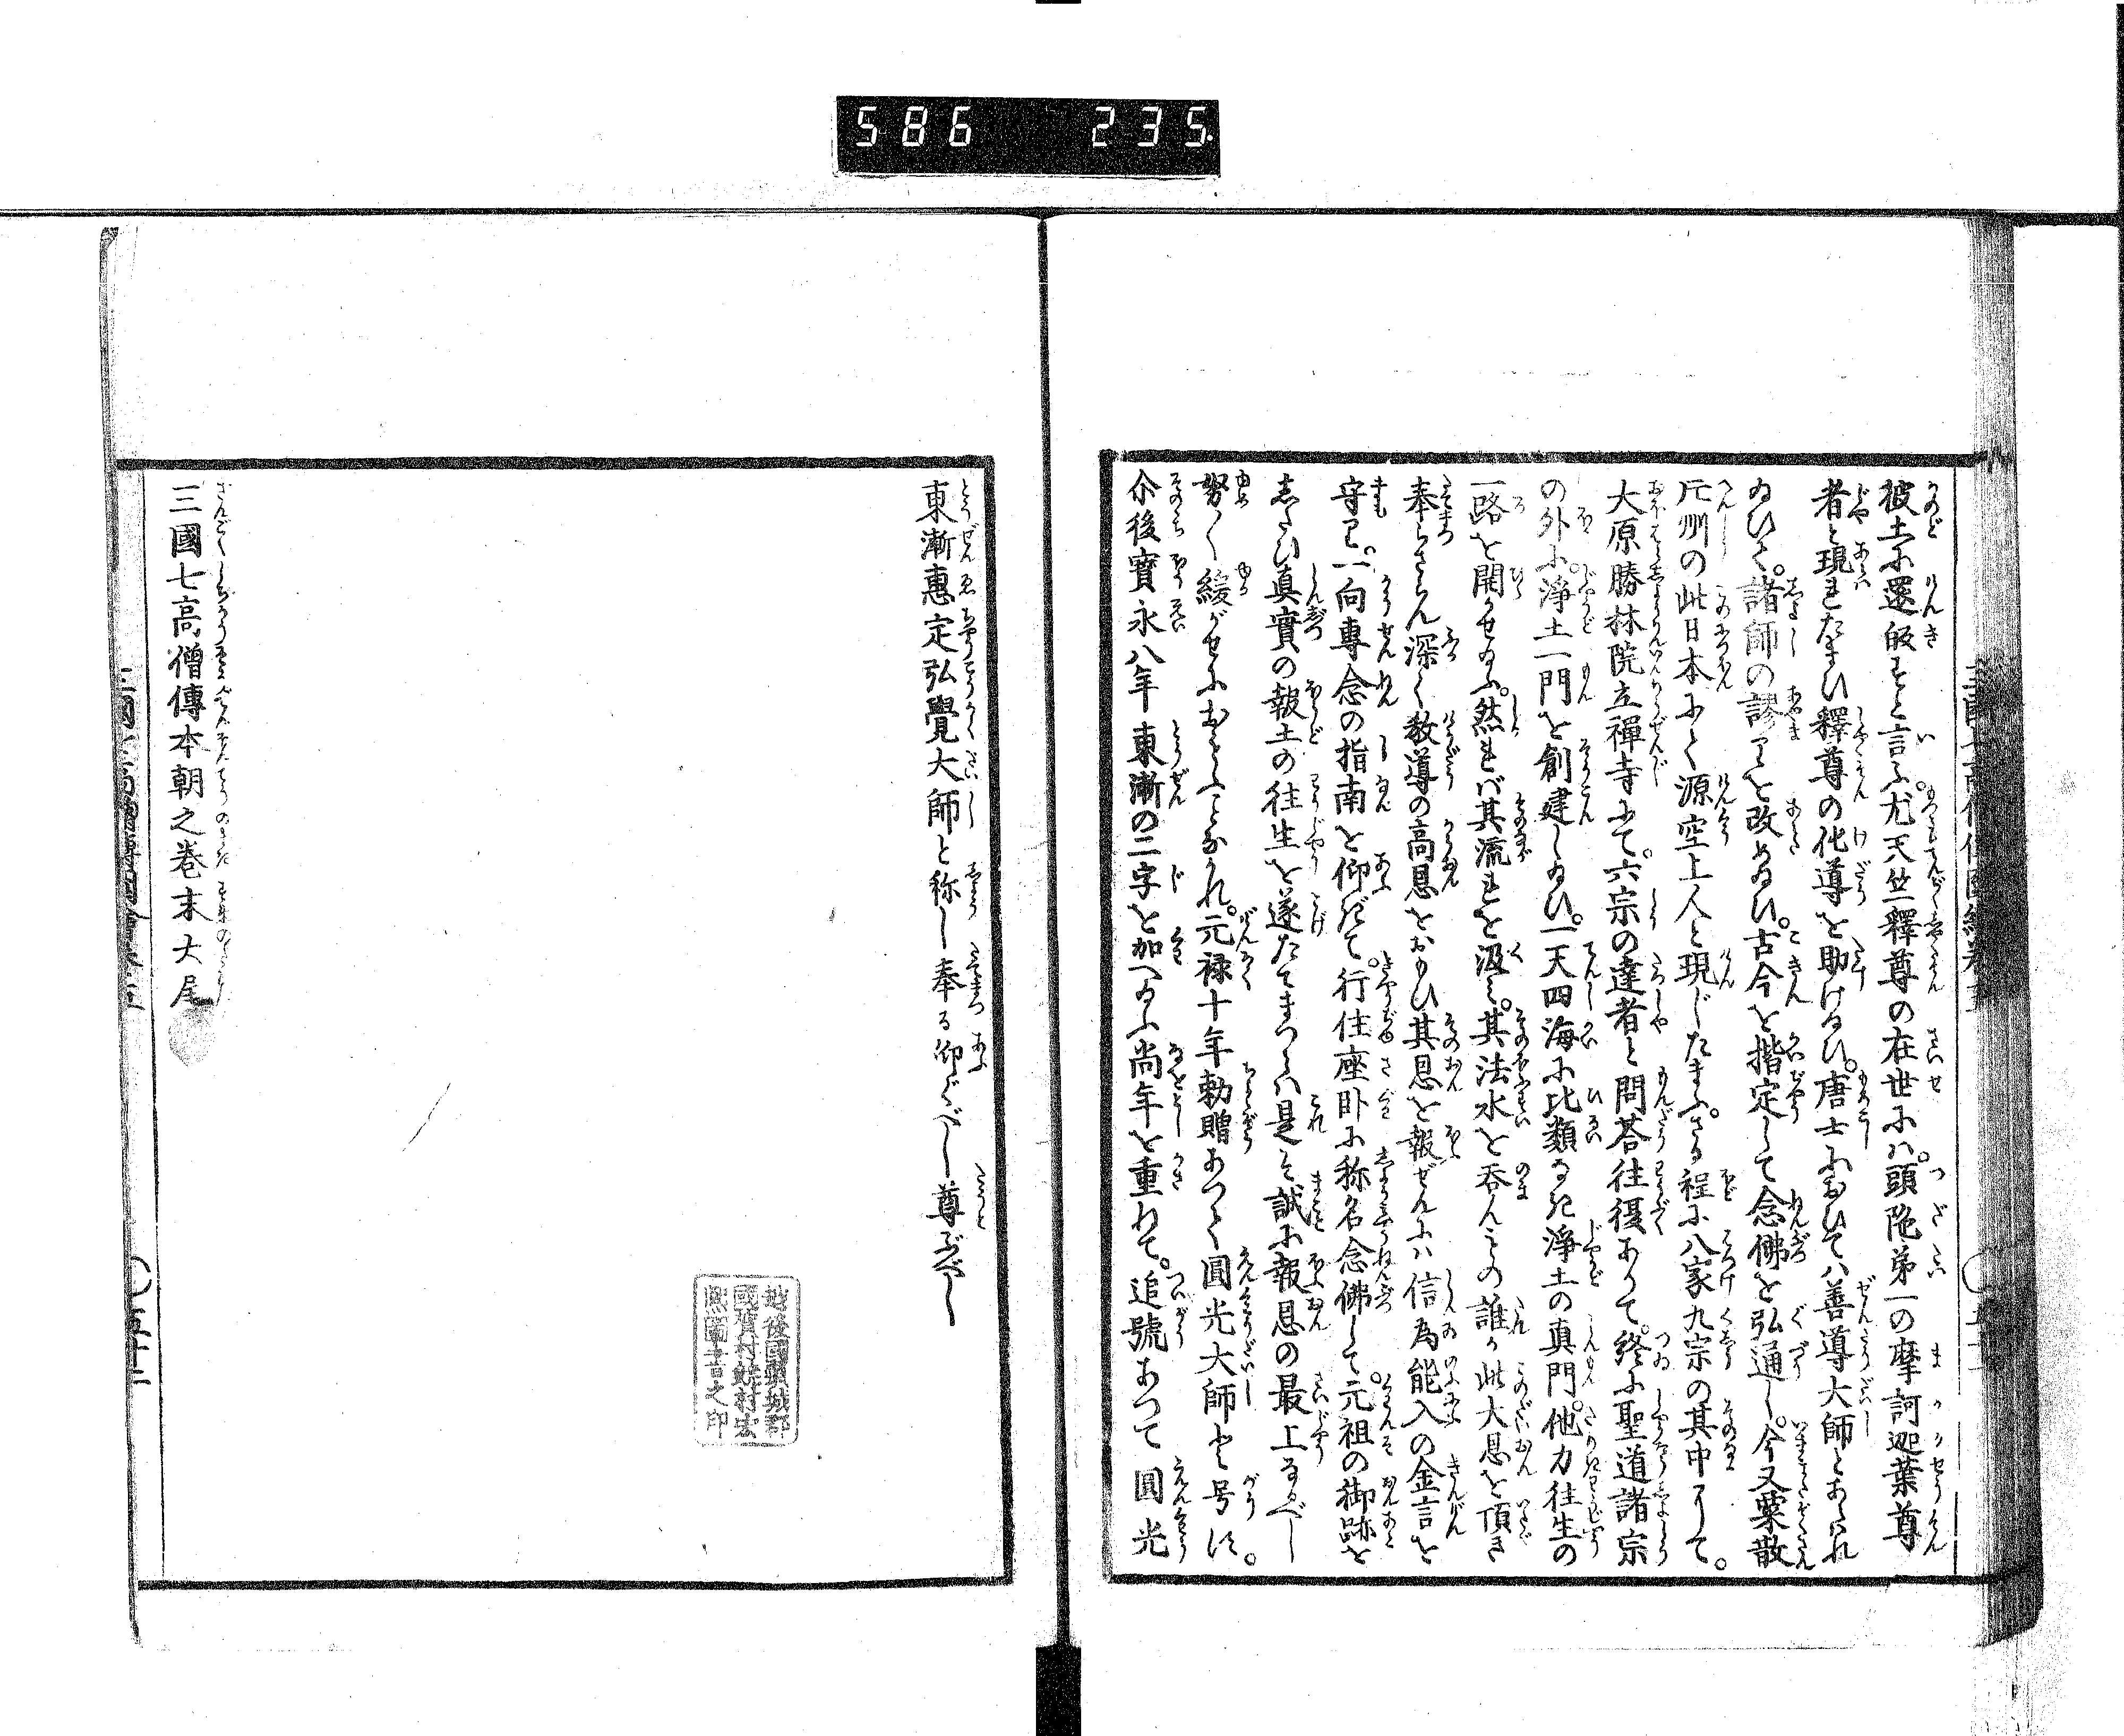 586 235
彼土に還皈すと言ふ。尤天竺釋尊の在世には。頭陀第一の摩訶迦葉尊
者と現れたまひ釋尊の化導を助けゐひ。唐土におひては善導大師とあらはれ
ゐひて。諸師の謬りを改めゐひ。古今を揩定して念佛を弘通し。今又粟散
片州の此日本にて源空上人と現じたまふ。さる程に八家九宗の其中にして。
大原勝林院立禪寺にて。六宗の達者と問荅往復ありて。終に聖道諸宗
の外に。淨土一門を創建しゐひ。一天四海に比類なき淨土の真門。他力往生の
一路を開かせゐふ。然れば其流れを汲て。其法水を呑んもの誰か此大恩を頂き
奉らさらん深く教導の高恩をおもひ其恩を報ぜんには信為能入の金言を
守り。一向專念の指南を仰ぎて。行住座卧に称名念佛して。元祖の御跡を
したひ真實の報土の往生を遂たてまつらは是ぞ誠に報恩の最上なるべし
努〱緩がせにおもふことなかれ。元禄十年勅贈あつて圓光大師と号す。
尒後寳永八年東漸の二字を加へゐふ尚年を重ねて。追號あつて圓光
東漸惠定弘覺大師と称し奉る仰ぐべし尊ぶべし
越後國頸城郡
三國七高僧傳本朝之巻末大尾